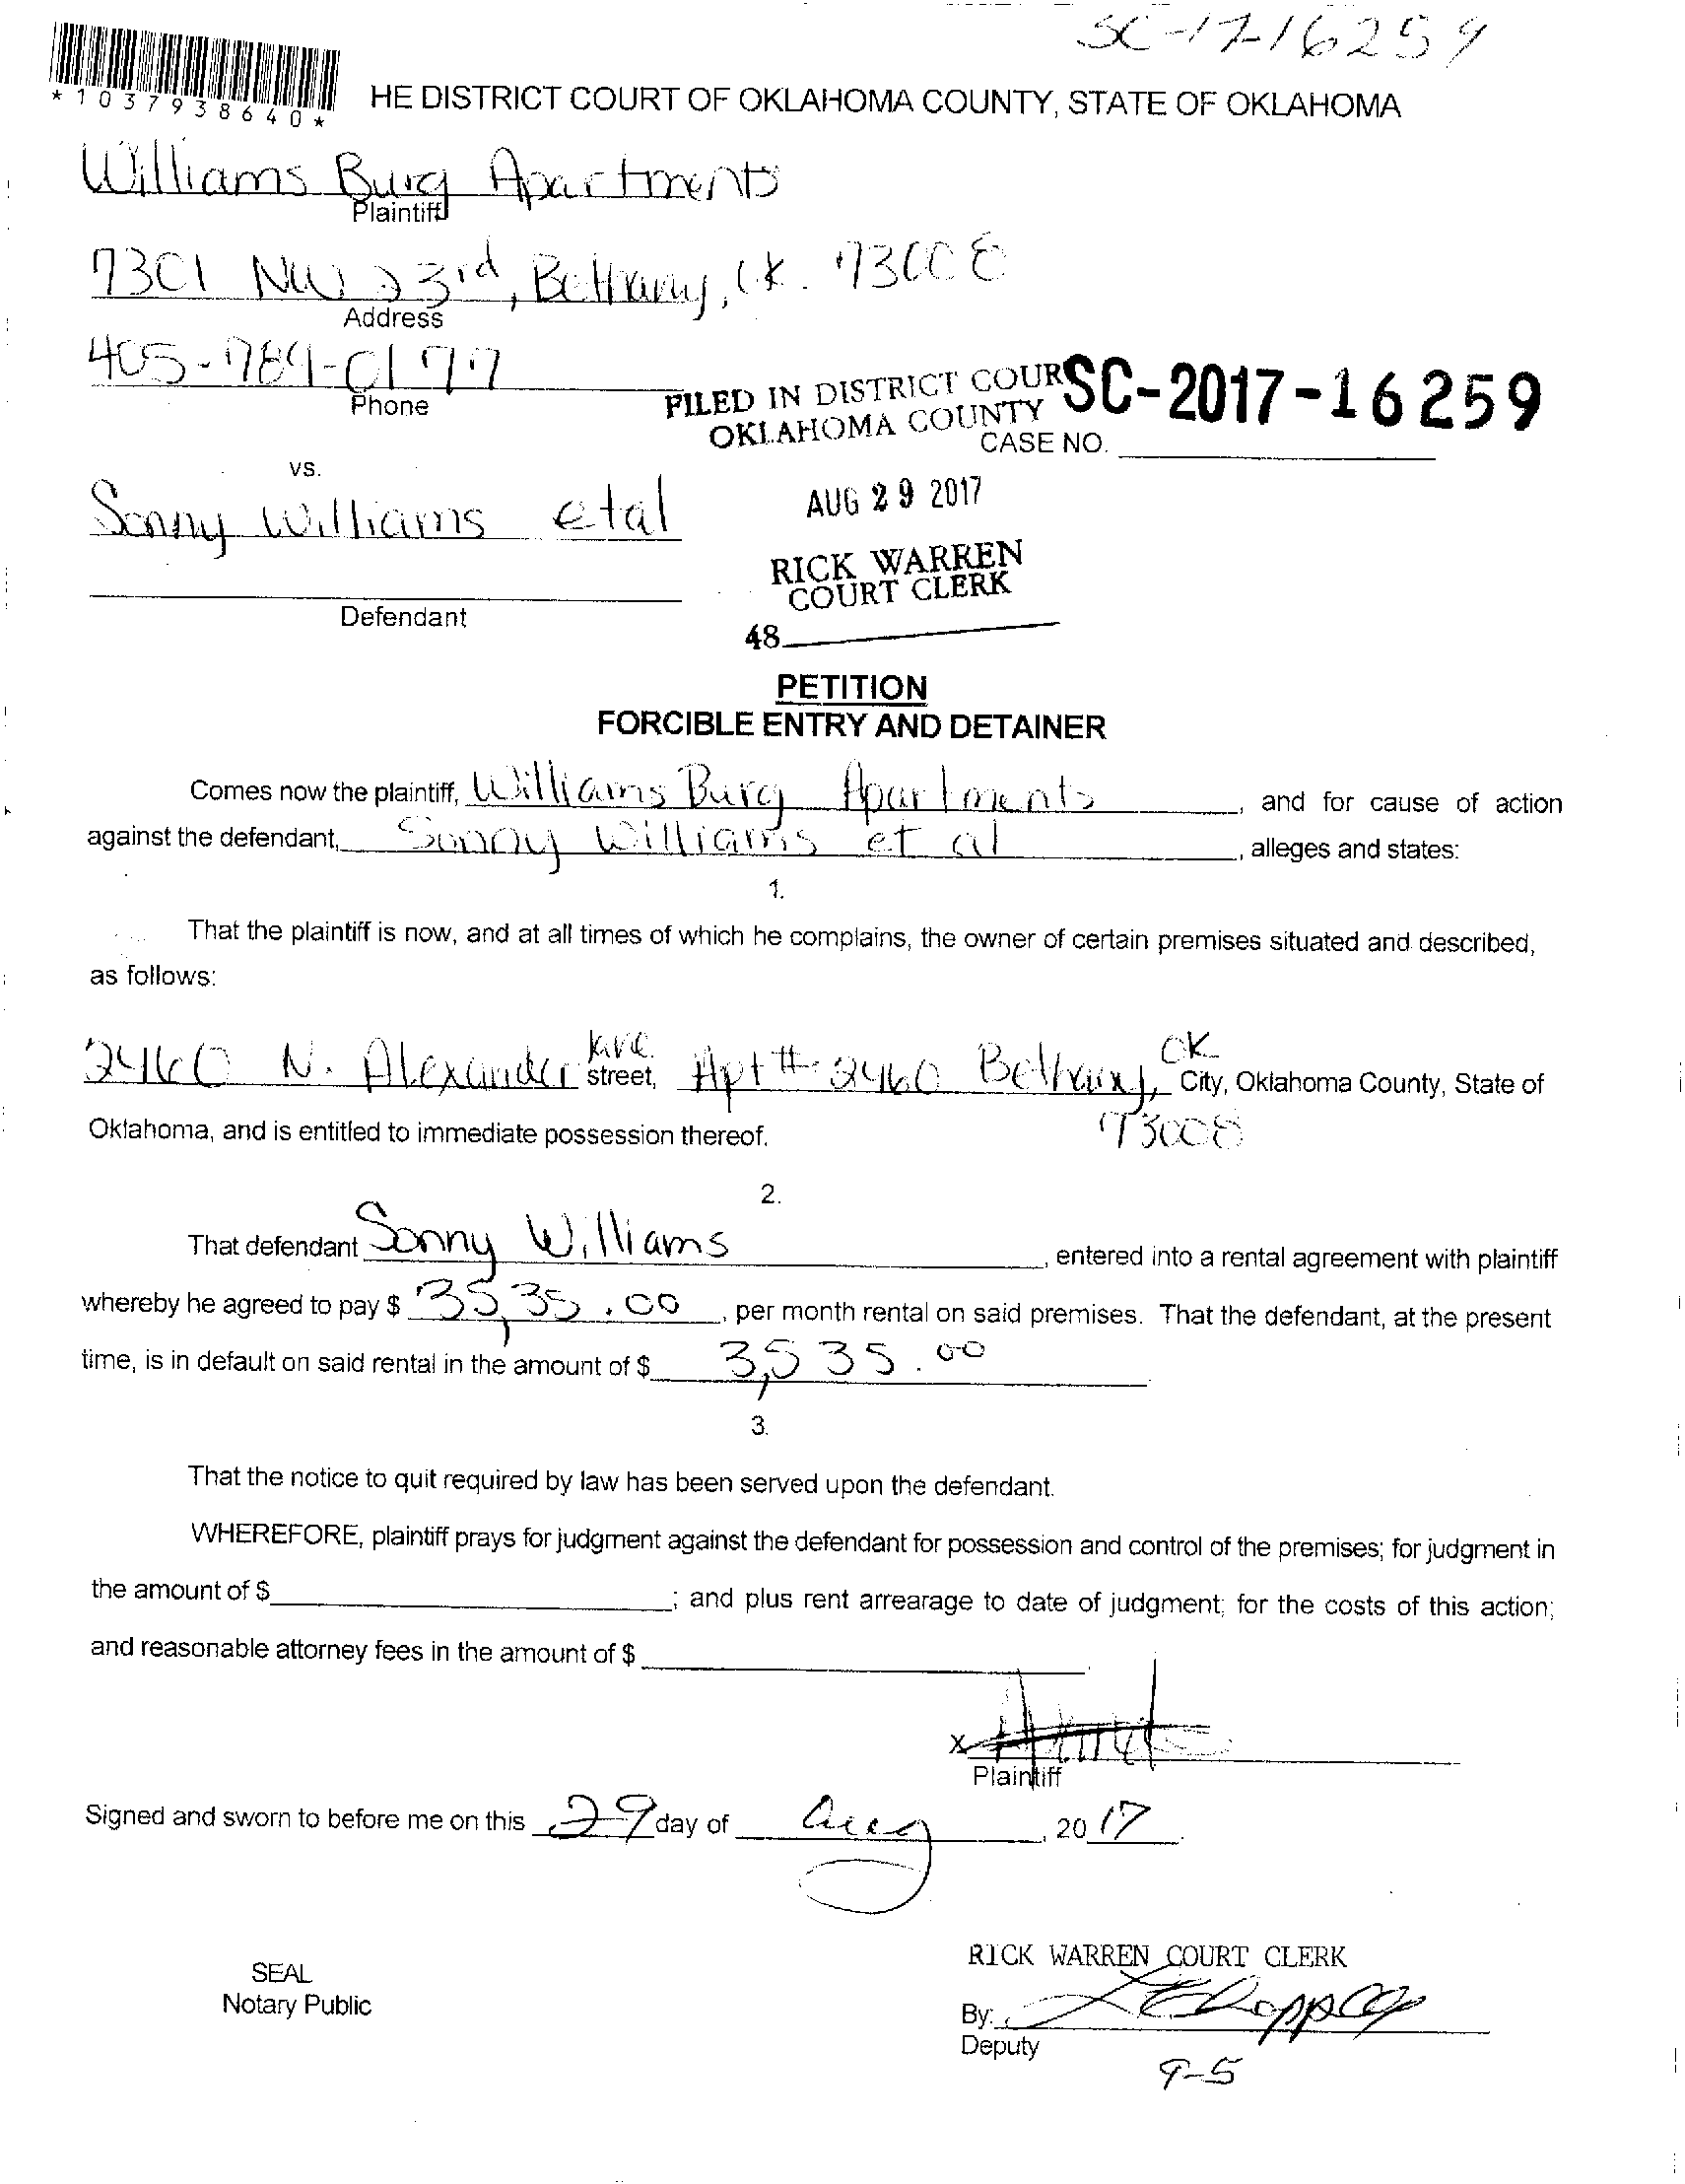 SC-17-16259
*1037938640*
HE DISTRICT COURT OF OKLAHOMA COUNTY, STATE OF OKLAHOMA
Williams Burg Apartments
Plaintiff
7301 NW 23rd, Bethany, OK. 73008
Address
405-789-0177
Phone
FILED IN DISTRICT COUR
OKLAHOMA COUNTY
SC-2017-16259
CASE NO.
vs.
Sonny Williams etal
AUG 29 2017
RICK WARREN
COURT CLERK
Defendant
48
PETITION
FORCIBLE ENTRY AND DETAINER
Comes now the plaintiff, Williams Burg Apartments, and for cause of action
against the defendant, Sonny Williams et al, alleges and states:
1.
That the plaintiff is now, and at all times of which he complains, the owner of certain premises situated and described,
as follows:
2460 N. Alexander Ave. street, Apt # 2460 Bethany, OK City, Oklahoma County, State of
73008
Oklahoma, and is entitled to immediate possession thereof.
2.
That defendant Sonny Williams, entered into a rental agreement with plaintiff
whereby he agreed to pay $ 35,35.00, per month rental on said premises. That the defendant, at the present
time, is in default on said rental in the amount of $ 3,535.00
3.
That the notice to quit required by law has been served upon the defendant.
WHEREFORE, plaintiff prays for judgment against the defendant for possession and control of the premises; for judgment in
the amount of $ ; and plus rent arrearage to date of judgment; for the costs of this action;
and reasonable attorney fees in the amount of $
x
Plaintiff
Signed and sworn to before me on this 29 day of Aug, 2017.
SEAL
Notary Public
RICK WARREN COURT CLERK
By:
Deputy
9-5